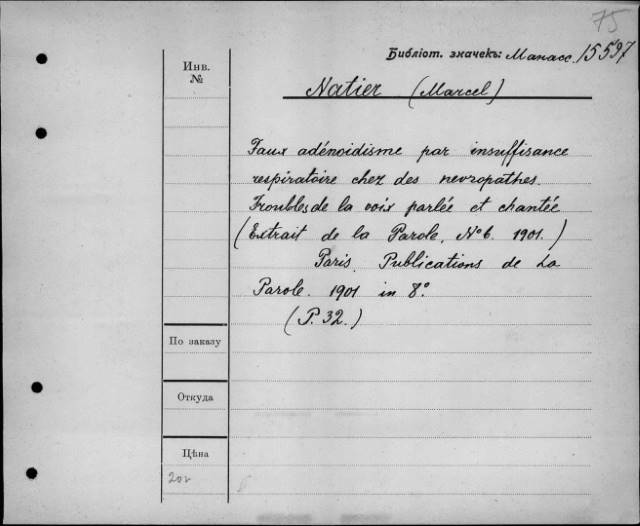 75
Библіот. значекъ: Манасс. 15597
Инв.
№
Natier (Marcel)
Faux adénoidisme par insuffisance
respiratoire chez des nevropathes.
Troubles de la voix parlée et chantée
(Extrait de la Parole, No 6. 1901.)
Paris. Publications de La
Parole. 1901 in 8°.
(P. 32.)
По заказу
Откуда
Цѣна